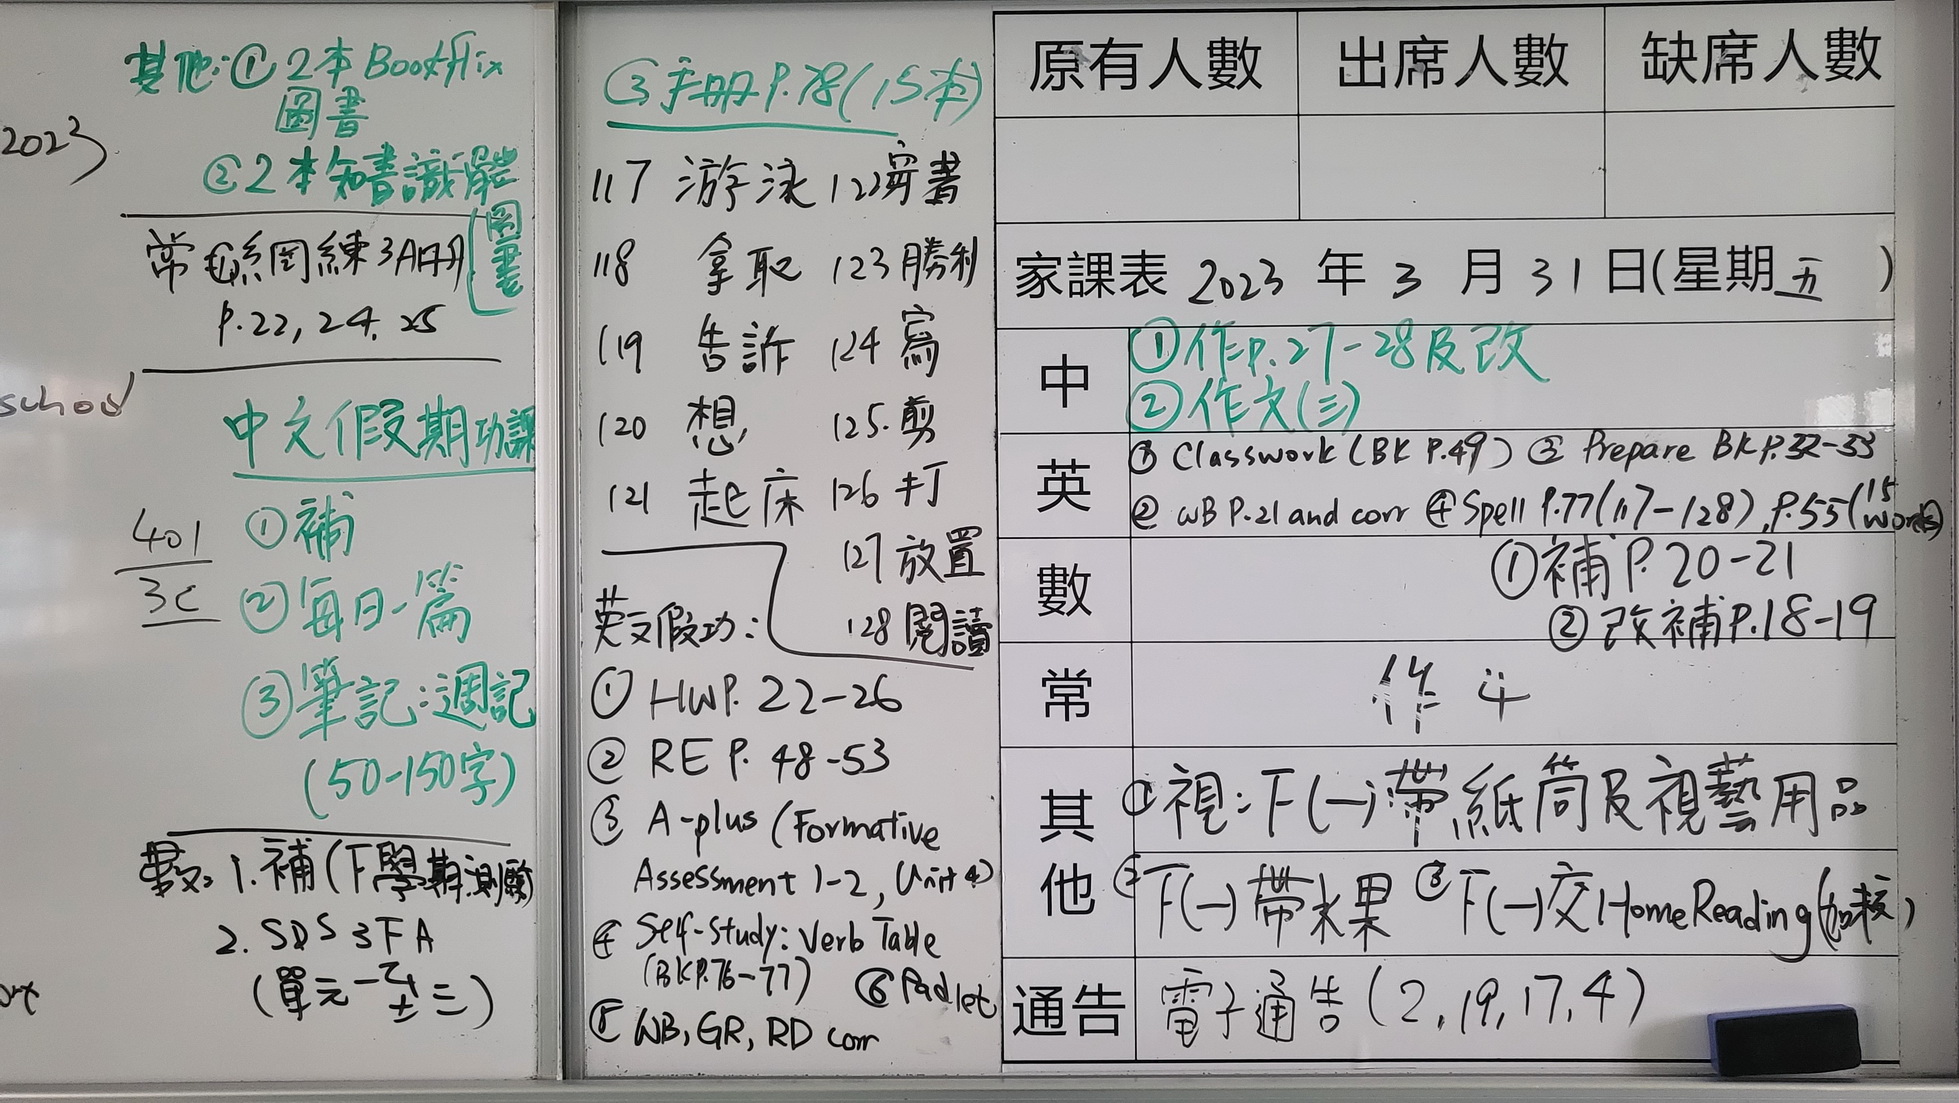 2023
school
其他:①2本Bookflix
圖書
②2本知書識
(圖書)
常:網練3A冊
P.22, 24, 25
中文假期功課
401
3C
①補
②每日一篇
③筆記:週記
(50-150字)
數:1.補(下學期測驗)
2. SDS 3F A
(單元一至三)
③手冊P.78(15本)
117 游泳 122穿書
118 拿取 123勝利
119 告訴 124寫
120 想 125.剪
121 起床 126打
127放置
128閱讀
英文假功:
① HW P. 22-26
② RE P. 48-53
③ A-plus (Formative
Assessment 1-2, Unit 4)
④ Self-Study: Verb Table
(BK P.76-77) ⑥Padlet
⑤ WB, GR, RD corr
原有人數 出席人數 缺席人數
家課表 2023 年 3 月 31 日(星期五)
中 ①作P.27-28及改
②作文(三)
英 ① Classwork (BK P.49) ③ Prepare BK P.32-33
② WB P.21 and corr ④ Spell P.77(117-128), P.55(15 words)
數 ①補P.20-21
②改補P.18-19
常 作 4
其他 ①視:下(一)帶紙筒及視藝用品
②下(一)帶水果 ③下(一)交Home Reading(如有)
通告 電子通告(2,19,17,4)